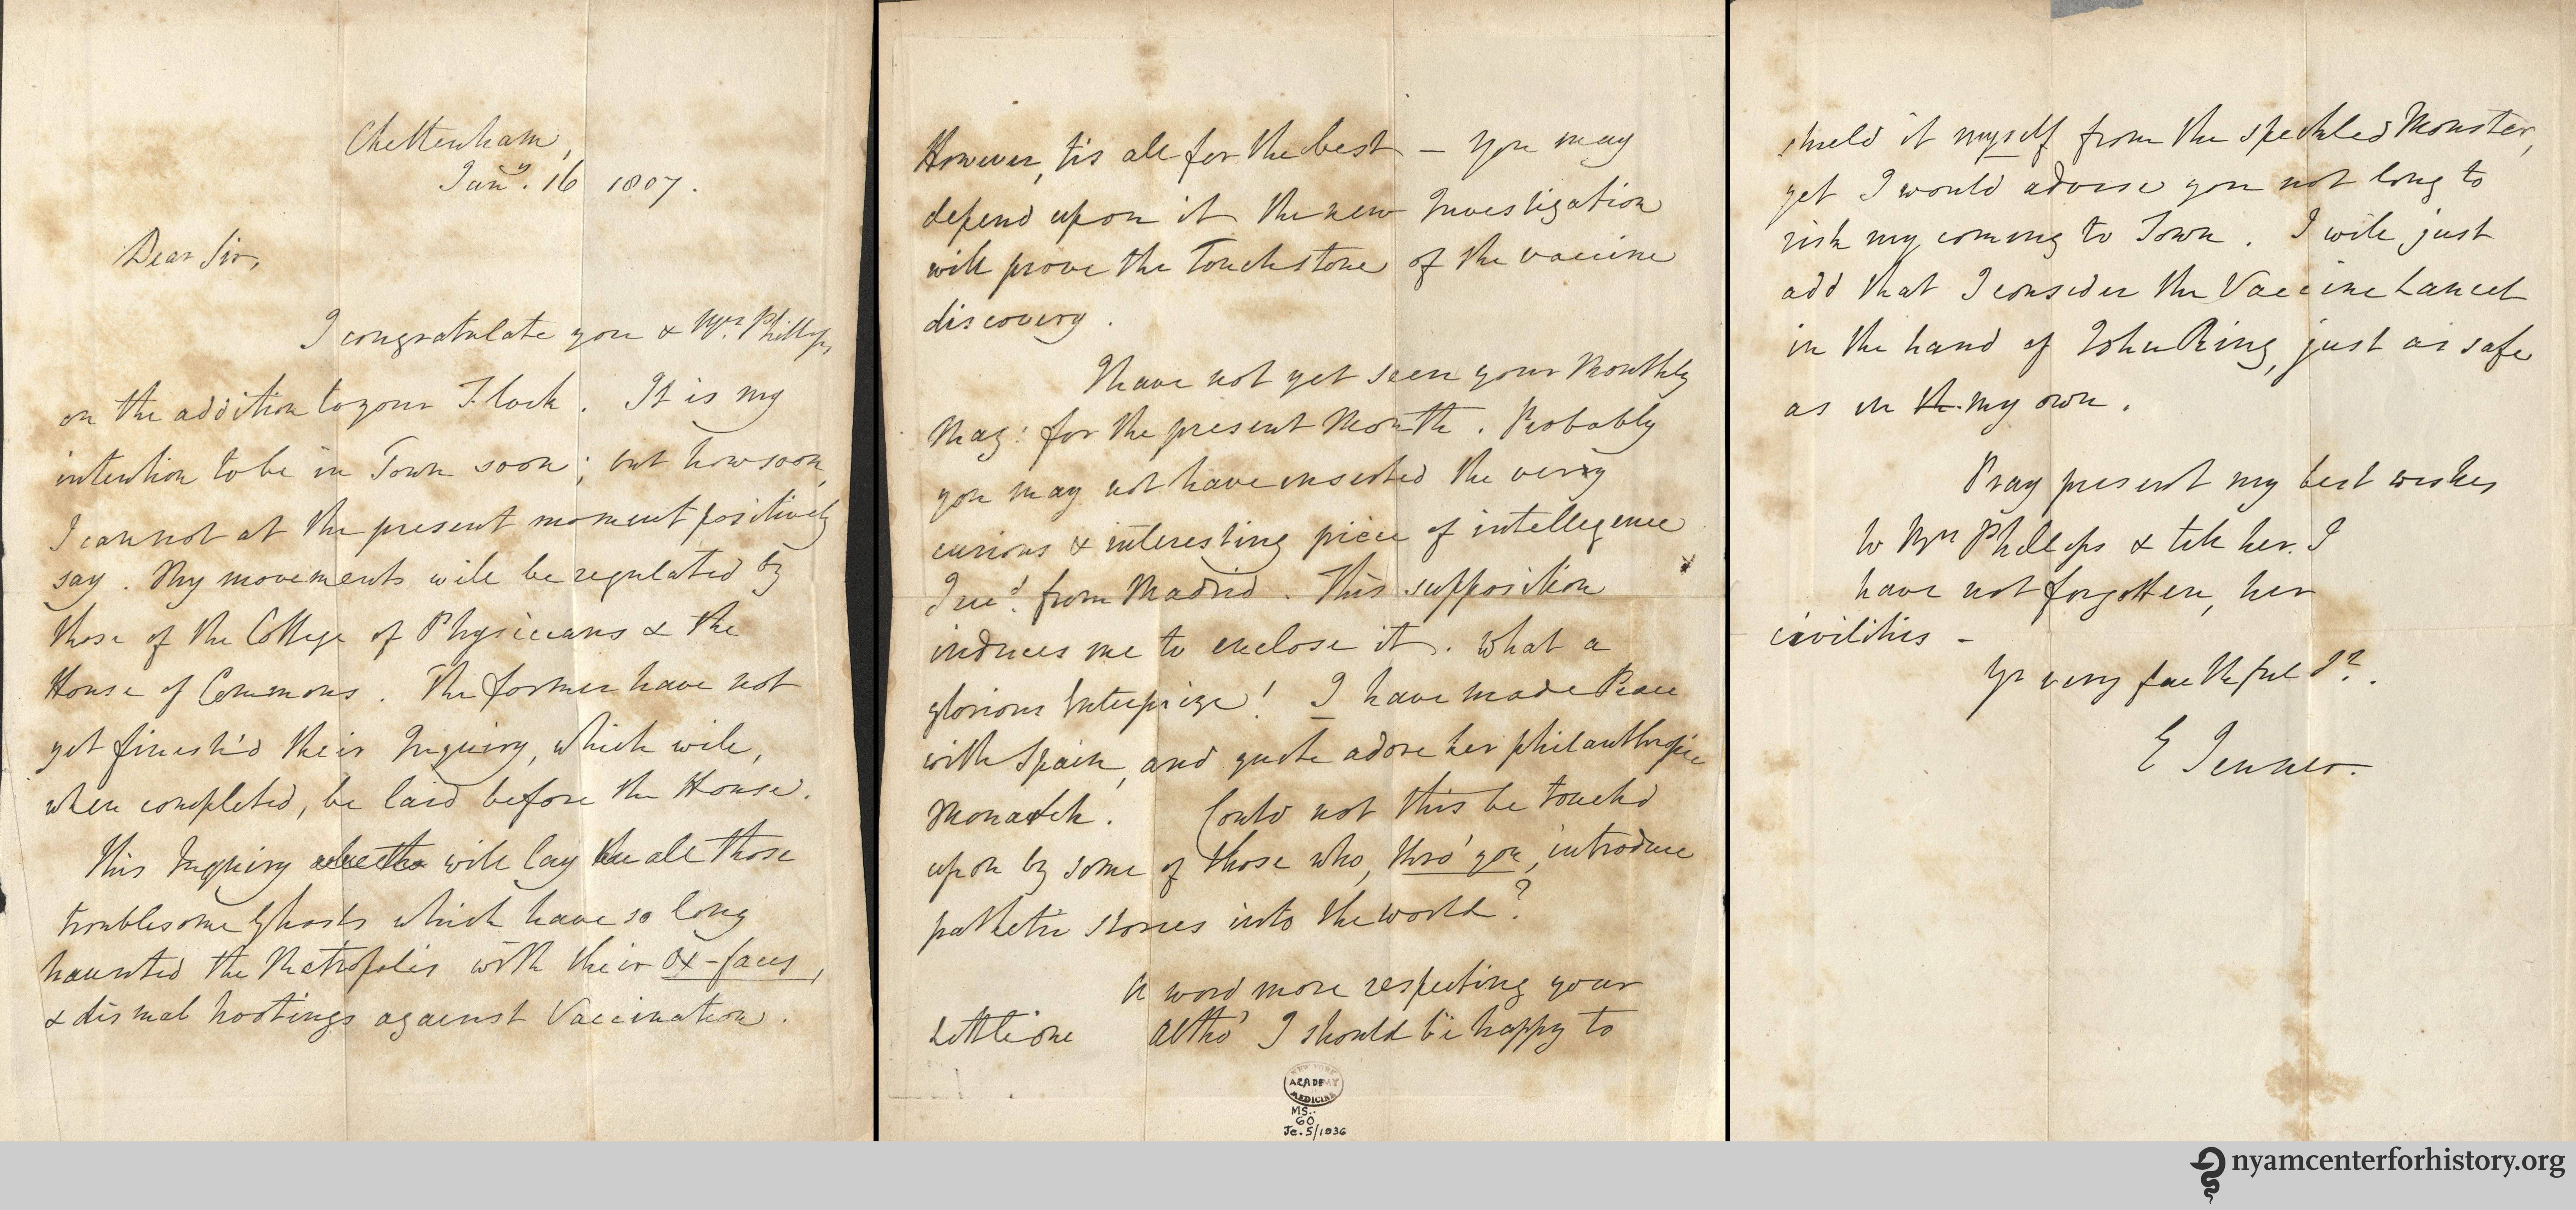 Cheltenham,
Jany. 16 1807.
Dear Sir,
I congratulate you & Mrs. Phillips,
on the addition to your Flock. It is my
intention to be in Town soon; but how soon,
I cannot at the present moment positively
say. My movements will be regulated by
those of the College of Physicians & the
House of Commons. The former have not
yet finish'd their Inquiry, which will,
when completed, be laid before the House.
This Inquiry will lay all those
troublesome Ghosts which have so long
haunted the Metropolis with their ox-faces,
& dismal hootings against Vaccination.
However, tis all for the best – You may
depend upon it the new Investigation
will prove the Touchstone of the vaccine
discovery.
I have not yet seen your Monthly
Mag: for the present Month. Probably
you may not have inserted the very
curious & interesting piece of intellegence
I recd. from Madrid. This supposition
induces me to enclose it. What a
glorious Enterprize! I have made Peace
with Spain, and quite adore her philanthropic
Monarch. Could not this be touchd
upon by some of those who, thro' you, introduce
pathetic stories into the world?
A word more respecting your
Little one Altho' I should be happy to
shield it myself from the speckled Monster,
yet I would advise you not long to
risk my coming to Town. I will just
add that I consider the Vaccine Lancet
in the hand of John Ring, just as safe
as in the my own.
Pray present my best wishes
to Mrs Phillips & tell her I
have not forgotten, her
civilities –
Yr very faithful Sr.
E Jenner.
NEW YORK
ACADEMY
MEDICINE
MS.
60
Je. 5/1936
nyamcenterforhistory.org